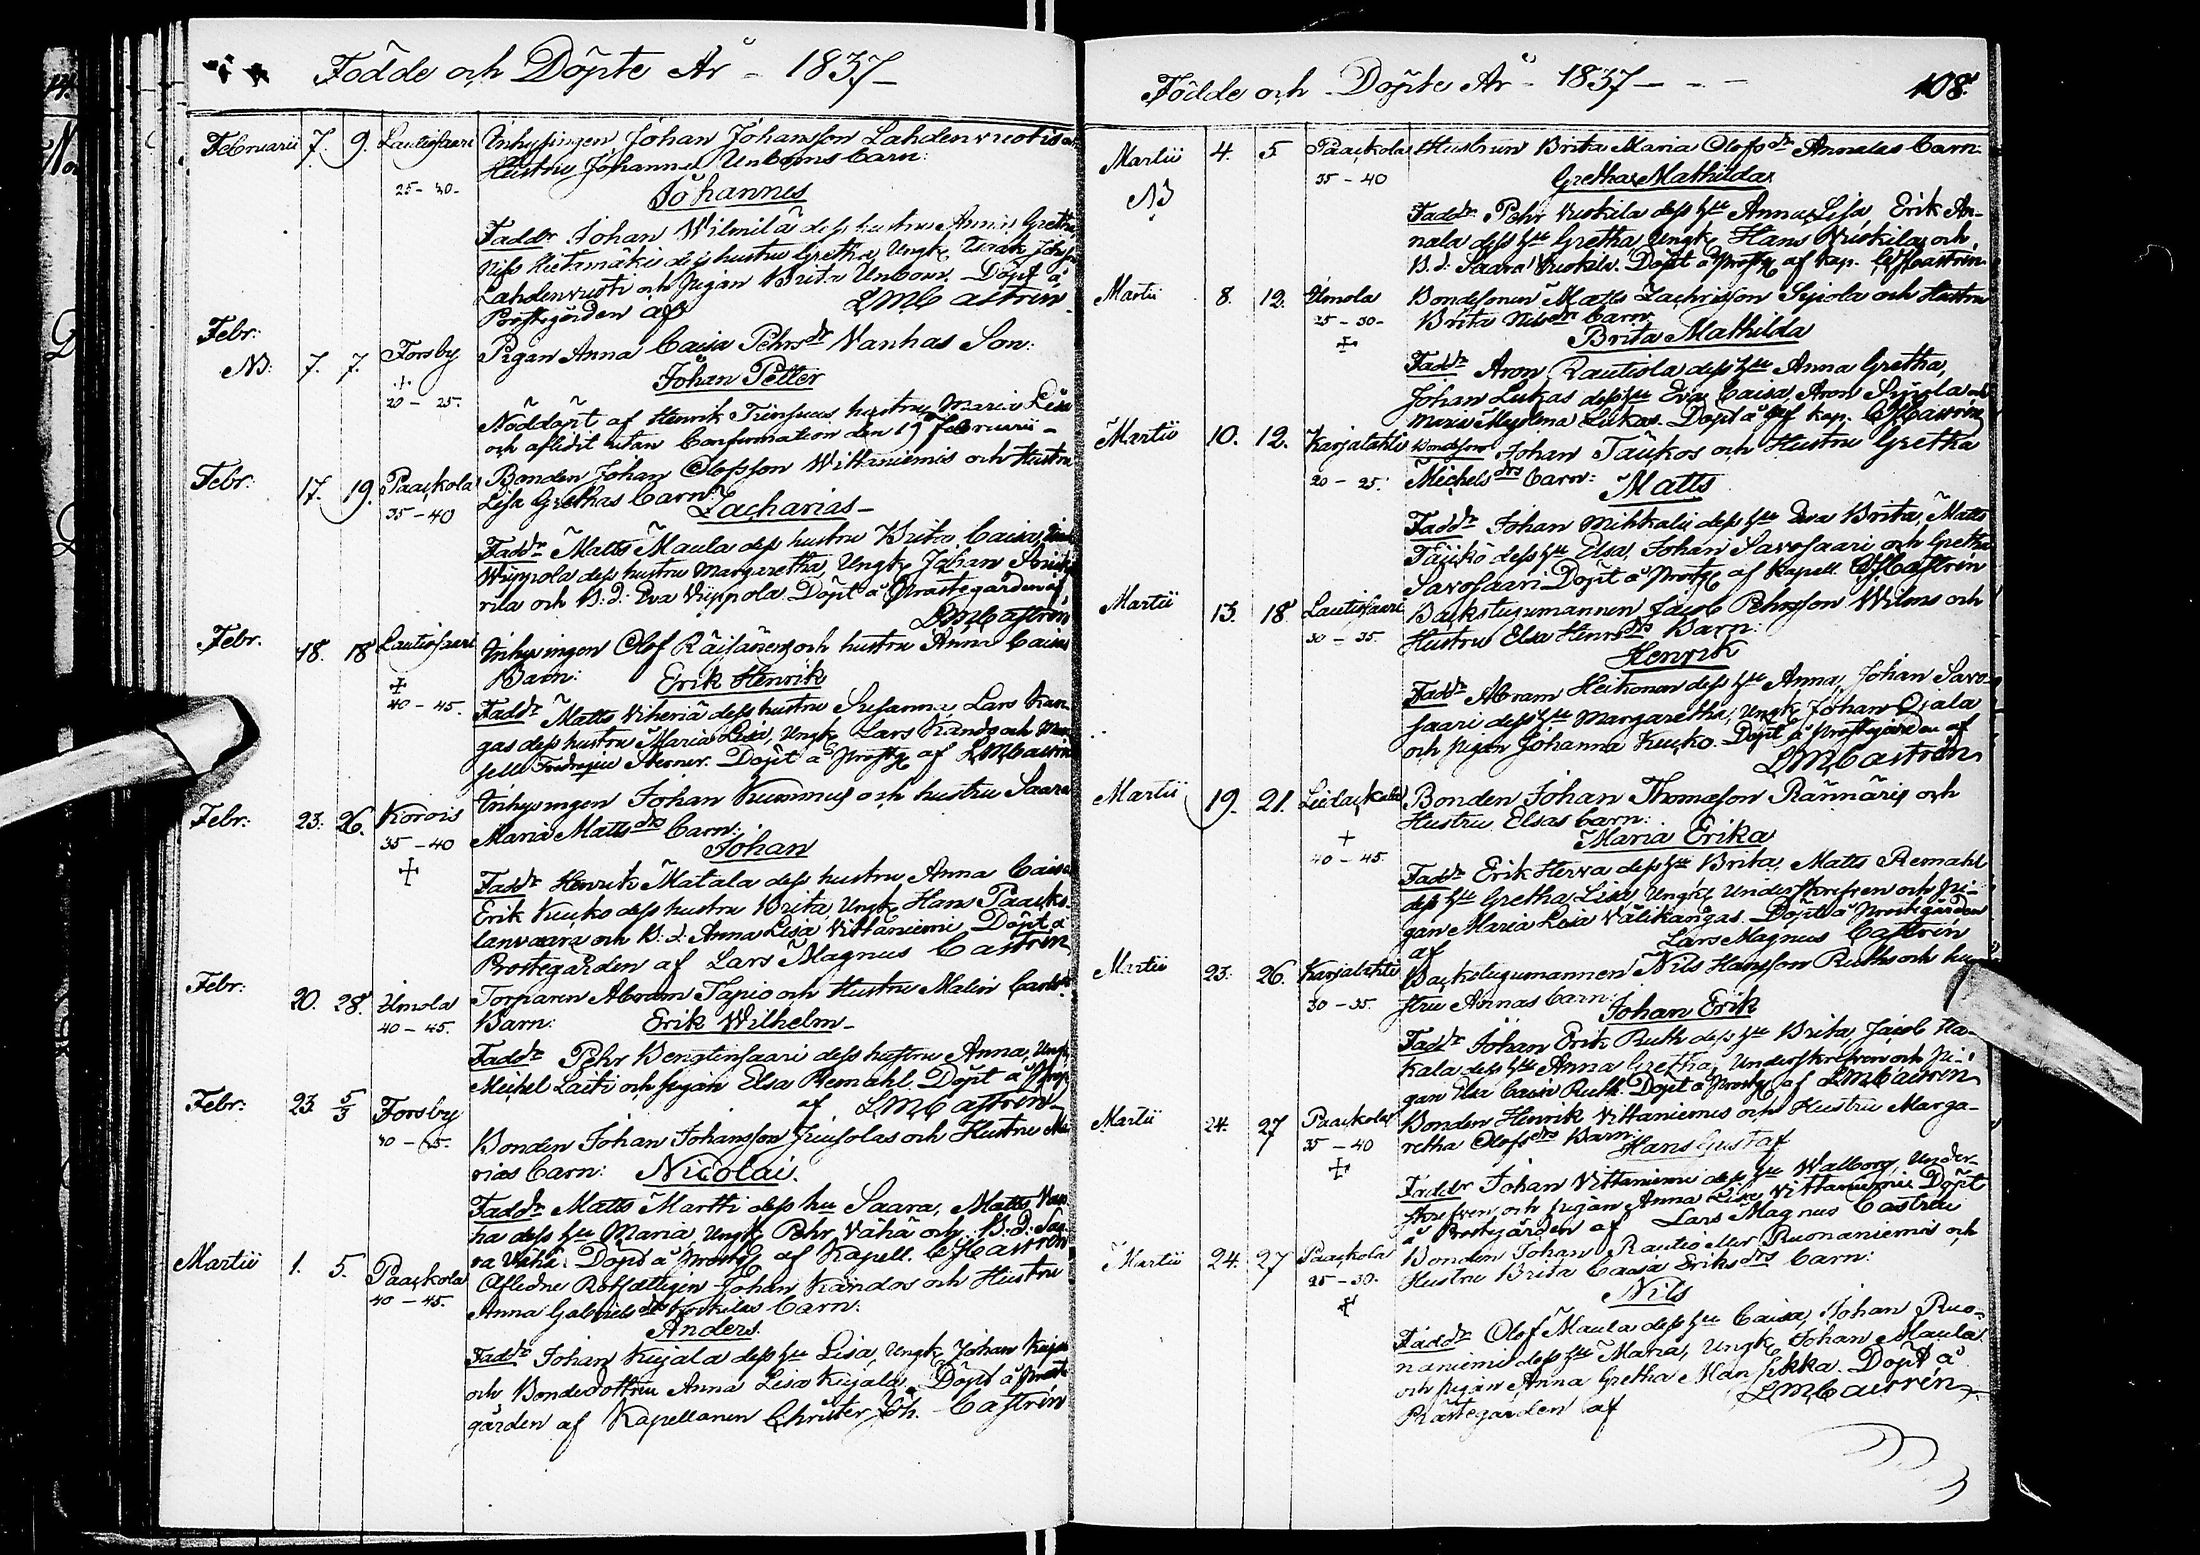 Födde och Döpte År - 1837 -
Februarii 7. 9. Lautiosaari Inhysingen Johan Johansson Lahdenruotis och
Hustru Johannas Unborns barn:
25 - 30 -
Johannes
Faddr Johan Wilmilä dess hustru Anna Gretha
Nils dess hustru Gretha, Ungk. Isak
och pigan Brita Unborn. Döpt å
Prostegården af LMCastrén
Febr:
NB: 7. 7. Forsby Pigan Anna Caisa Pehrsdr Vanhas Son:
Johan Petter
+
20 - 25.
Nöddöpt af Henrik hustru Maria Lisa
och aflidit utan Confirmation den 19 Februarii -
Febr: 17. 19. Paackola Bonden Johan Olofsson Wittaniemis och Hustru
35 - 40 Lisa Grethas barn
Zacharias -
Faddr Matts Maula dess hustru Brita Caisa,
Wuppola dess hustru Margaretha, Ungk. Johan
rila och B: d: Eva Wuppola Döpt å Prostegården af
LMCastrén
Febr. 18. 18 Lautiosaari Inhysingen Olof Räisänens och hustru Anna Caisas
Barn: Erik Henrik
+
40 - 45. Faddr Matts Viheriä dess hustru Susanna, Lars Kan
gas dess hustru Maria Lisa, Ungk. Lars Kando och Mam
sell Fredrique Sterner. Döpt å Prostg. af LMCastrén
Febr: 23. 26. Korois Inhysingen Johan Kummus och hustru Saara
35 - 40 Maria Mattsdrs barn:
Johan
+
Faddr Henrik Matala dess hustru Anna Caisa
Erik Kuuko dess hustru Brita, Ungk. Hans Paacko
lanvaara och B: d: Anna Lisa Vittaniemi Döpt å
Prostegården af Lars Magnus Castrén
Febr: 20. 28. Ilmola Torparen Abram Tapio och Hustru Malin Carlsdrs
40 - 45. Barn: Erik Wilhelm -
Faddr Pehr Bengtinsaari dess hustru Anna, Ungk.
Michel Laiti och pigan Elsa Remahl. Döpt å Prostg
af LMCastrén -
Febr: 23 5/3 Forsby
Bonden Johan Johansson Juusolas och Hustru Ma
rias barn: Nicolai.
Faddr Matts Martti dess hu Saara, Matts Van
ha dess hu Maria, Ungk. Pehr Vähä och B: d: Saa
ra Vähä. Döpt å Prostg. af Kapell. Castrén
Martii 1. 5. Paackola Aflidne Rotfattigen Johan Kandos och Hustru
40 - 45. Anna Gabrielsdrs barn:
Anders.
Faddr Johan Kujala dess hu Lisa, Ungk. Johan Kujala
och Bondedottren Anna Lisa Kujala. Döpt å Proste
gården af Kapellanen Christer Joh. Castrén
Födde och Döpte År - 1837 - - - 108.
Martii 4. 5 Paackola Hustrun Brita Maria Olofsdr Annalas barn.
NB 35 - 40 Gretha Mathilda
Faddr Pehr Ruskila dess hu Anna Lisa, Erik An-
nala dess hu Gretha, Ungk. Hans Ruskila och
B. d: Saara Ruskila. Döpt å Prostg af Kap. Castrén
Martii 8. 12. Ilmola Bondesonen Matts Zachrisson Sepiola och Hustru
25 - 30 - Brita Nilsdrs barn
+ Brita Mathilda
Faddr Aron Rautiola dess hu Anna Gretha,
Johan Lukas dess hu Eva Caisa, Aron och
Maria Lukas. Döpt å af kap. Castrén
Martii 10. 12. Karjalahti Bondeson Johan Taukos och Hustru Gretha
20 - 25. Michelsdrs barn: Matts
Faddr Johan Mihkali dess hu Eva Brita, Matts
dess hu Elsa, Johan Savosaari och Gretha
Savosaari Döpt å Prostg af Kapell. Castrén
Martii 13. 18. Lautiosaari Backstugumannen Jacob Pehrsson Wilms och
30 - 35. Hustru Elsa Henrsdrs Barn:
Henrik
Faddr Abram Heikonen dess hu Anna, Johan Savo-
saari dess hu Margaretha, Ungk. Johan Ojala
och pigan Johanna Kuuko. Döpt å Prostegården af
LMCastrén
Martii 19. 21. Liedackala Bonden Johan Thomasson Rännäris och
Hustru Elsas barn:
+ Maria Erika
40 - 45. Faddr Erik Herva dess hu Brita, Matts Remahl
dess hu Gretha Lisa, Ungk. Underskrefven och pi-
gan Maria Lisa Välikangas. Döpt å Prostegården
af Lars Magnus Castrén
Martii 23. 26. Karjalahti Backstugumannen Nils Hansson Ruths och hu
30 - 35. stru Annas barn: Johan Erik
Faddr Johan Erik Ruth dess hu Brita, Jacob Ha-
kala dess hu Anna Gretha, Underskrefven och pi-
gan Elsa Caisa Ruth. Döpt å Prostg af LMCastrén
Martii 24. 27 Paackola Bonden Henrik Vittaniemis och Hustru Marga-
35 - 40 retha Olofsdrs Barn:
+ Hans Gustaf
Faddr Johan Vittaniemi dess hu Walborg, Under-
skrefven och pigan Anna Lisa Vittaniemi Döpt
å Prostegården af Lars Magnus Castrén
Martii 24. 27 Paackola Bonden Johan Rautio eller Ruonaniemis och
25 - 30. Hustru Brita Caisa Eriksdrs barn:
+ Nils
Faddr Olof Maula dess hu Caisa, Johan Ruo-
naniemi dess hu Maria, Ungk. Johan Maula
och pigan Anna Gretha Mansikka. Döpt å
Prästegården af LMCastrén